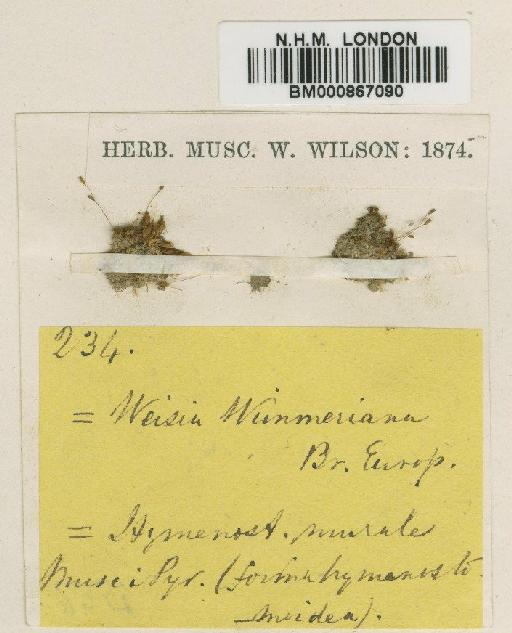 N.H.M. LONDON
BM000867090
HERB. MUSC. W. WILSON: 1874.
234.
= Weisia Wimmeriana
Br. Europ.
= Hymenost. murale
Musci Pyr. (forma hymenosto-
moidea).